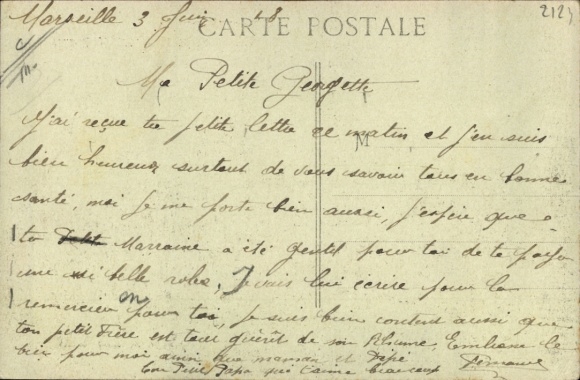 Marseille 3 Juin 18
2124
CARTE POSTALE
Ma Petite Georgette
J'ai reçue ta petite lettre ce matin et j'en suis
bien heureux surtout de vous savoir tous en bonne
santé, moi je me porte bien aussi, j'espère que
ta Marraine a été gentil pour toi de te payer
une si belle robe, Je vais lui écrire pour la
remercier pour toi, je suis bien content aussi que
ton petit Frère est tout guérit de son Rhume, Embrasse le
bien pour moi ainsi que maman et Pépé
Ton Petit Papa qui t'aime beaucoup